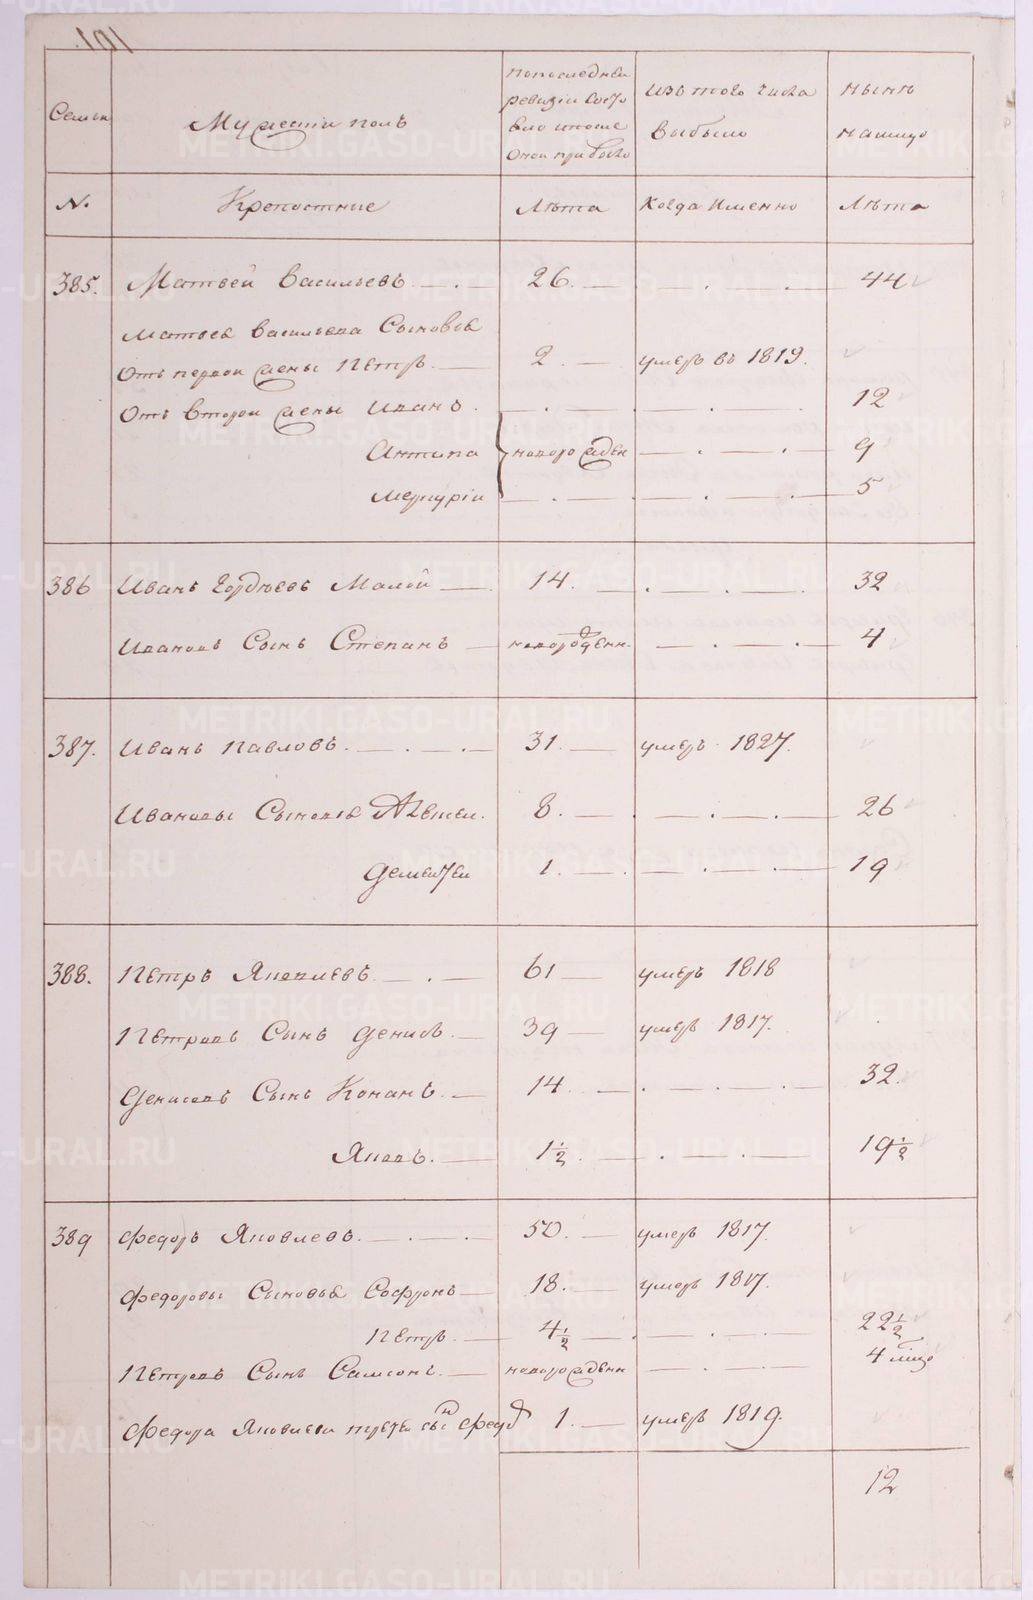 101.
Семьи
Мужескiй полъ
по последней
ревизiи состо
яло и после
оной прибыло
изъ того числа
выбыло
нынѣ
на лицо
№.
Крепостные
Лѣта
Когда именно
Лѣта
385. Матвей Васильевъ 26. 44
Матвея Васильева Сыновья
отъ первой жены Петръ. 2 умеръ въ 1819.
отъ второй жены Иванъ. 12
Антипа новорожден 9
Меркурiй 5
386 Иванъ Гордѣевъ Малой 14. 32
Ивановъ Сынъ Степанъ новорожденн. 4
387. Иванъ Павловъ. 31. умеръ 1827.
Ивановы Сыновья Алексей. 8. 26
Дементей 1. 19
388. Петръ Яковлевъ 61 умеръ 1818
Петровъ Сынъ Денисъ. 39 умеръ 1817.
Денисовъ Сынъ Кононъ. 14. 32.
Яковъ. 1½. 19½
389 Федоръ Яковлевъ. 50. умеръ 1817.
Федоровы Сыновья Софронъ 18. умеръ 1817.
Петръ. 4½ 22½
Петровъ Сынъ Самсонъ. новорожденн 4
Федора Яковлева сынъ Федо 1. умеръ 1819.
12
METRIKI.GASO-URAL.RU